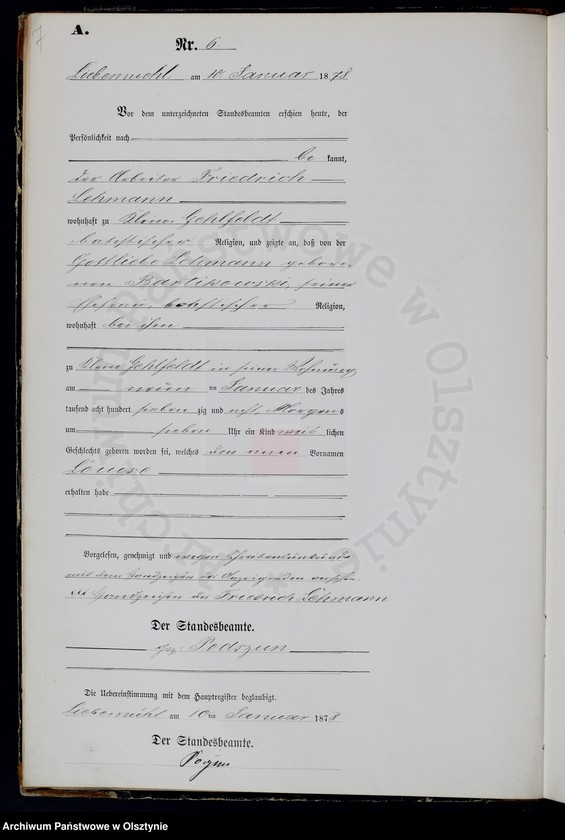 7
A.
Nr. 6
Liebemühl am 10. Januar 1878
Vor dem unterzeichneten Standesbeamten erschien heute, der
Persönlichkeit nach
be kannt,
der Arbeiter Friedrich
Lehmann
wohnhaft zu Klein Gehlfeldt
babtistischer Religion, und zeigte an, daß von der
Gottliebe Lehmann gebore-
nen Bartikowski, seiner
Ehefrau babtistischer Religion,
wohnhaft bei ihm
zu Klein Gehlfeldt in seiner Wohnung
am neun ten Januar des Jahres
tausend acht hundert sieben zig und acht, Morgens
um sieben Uhr ein Kind weib lichen
Geschlechts geboren worden sei, welches den einen Vornamen
Louise
erhalten habe
Vorgelesen, genehmigt und wegen Schreibensunkunde
mit dem Handzeichen des Anzeigenden versehen.
xxx Handzeichen des Friedrich Lehmann
Der Standesbeamte.
gez. Podszun
Die Uebereinstimmung mit dem Hauptregister beglaubigt.
Liebemühl am 10ten Januar 1878
Der Standesbeamte.
Archiwum Państwowe w Olsztynie
Archiwum Państwowe w Olsztynie